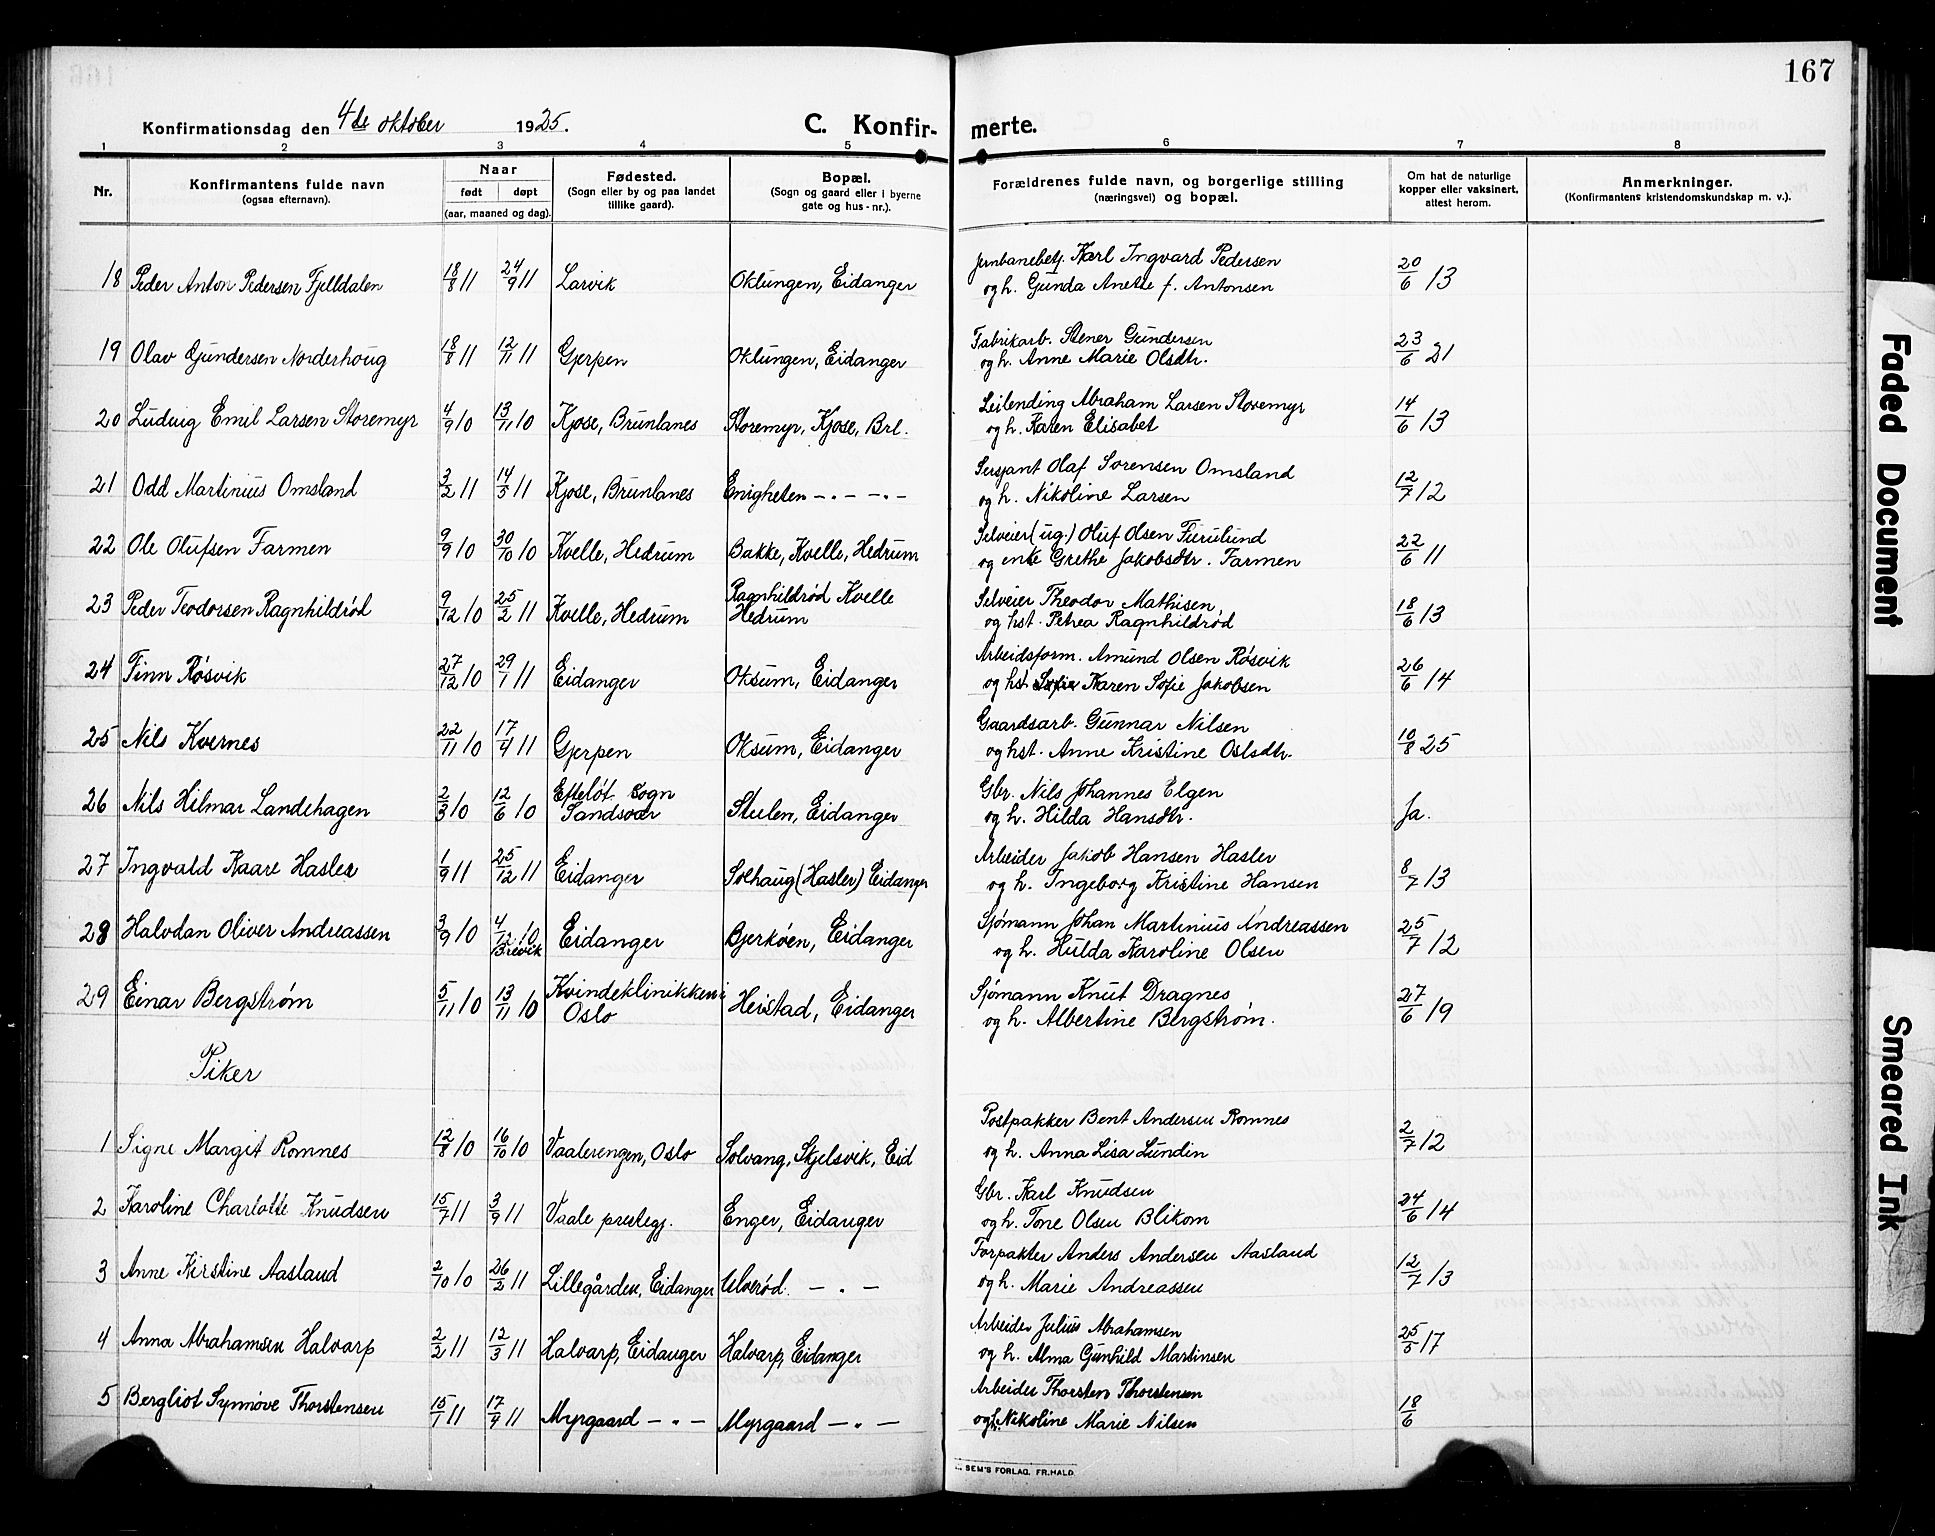 167
Konfirmationsdag den 4de oktober 1925. C. Konfir- merte.
1 2 3 4 5 6 7 8
Nr. Konfirmantens fulde navn (ogsaa efternavn). Naar født døpt (aar, maaned og dag). Fødested. (Sogn eller by og paa landet tillike gaard). Bopæl. (Sogn og gaard eller i byerne gate og hus-nr.). Forældrenes fulde navn, og borgerlige stilling (næringsvei) og bopæl. Om hat de naturlige kopper eller vaksinert, attest herom. Anmerkninger. (Konfirmantens kristendomskundskap m. v.).
18 Peder Anton Pedersen Fjelldalen 18/8 11 24/9 11 Larvik Oklungen, Eidanger Jernbanebetj. Karl Ingvard Pedersen 20/6 13
og h. Gunda Anette f. Antonsen
19 Olav Gundersen Norderhoug 18/8 11 12/11 11 Gjerpen Oklungen, Eidanger Fabrikarb. Stener Gundersen 23/6 21
og h. Anne Marie Olsdtr.
20 Ludvig Emil Larsen Storemyr 4/9 10 13/11 10 Kjose, Brunlanes Storemyr, Kjose, Brl. Leilending Abraham Larsen Storemyr 14/6 13
og h. Karen Elisabet
21 Odd Martinius Omsland 3/2 11 14/5 11 Kjose, Brunlanes Enigheten -"- -"- Sersjant Olaf Sorensen Omsland 12/7 12
og h. Nikoline Larsen
22 Ole Olufsen Farmen 9/9 10 30/10 10 Kvelle, Hedrum Bakke, Kvelle, Hedrum Selveier (ug.) Oluf Olsen Furulund 22/6 11
og enke Grethe Jakobsdtr. Farmen
23 Peder Teodorsen Ragnhildrød 9/12 10 25/2 11 Kvelle, Hedrum Ragnhildrød Kvelle Hedrum Selveier Theodor Mathisen, 18/6 13
og hst. Petrea Ragnhildrød
24 Finn Røsvik 27/12 10 29/1 11 Eidanger Oksum, Eidanger Arbeidsform. Amund Olsen Røsvik 26/6 14
og hst. Sofie Karen Sofie Jakobsen
25 Nils Kvernes 22/11 10 17/4 11 Gjerpen Oksum, Eidanger Gaardsarb. Gunnar Nilsen 10/8 25
og hst. Anne Kristine Oslsdtr.
26 Nils Hilmar Landehagen 2/3 10 12/6 10 Efteløt sogn Sandsvær Stulen, Eidanger Gbr. Nils Johannes Elgen Ja.
og h. Hilda Hansdtr.
27 Ingvald Kaare Hasler 1/9 11 25/12 11 Eidanger Solhaug (Hasler) Eidanger Arbeider Jakob Hansen Hasler 8/7 13
og h. Ingeborg Kristine Hansen
28 Halvdan Oliver Andreassen 3/9 10 4/12 10 Brevik Eidanger Bjerkøen, Eidanger Sjømann Johan Martinius Andreassen 25/7 12
og h. Hulda Karoline Olsen
29 Einar Bergstrøm 5/11 10 13/11 10 Kvindeklinikken i Oslo Heistad, Eidanger Sjømann Knut Dragnes 27/6 19
og h. Albertine Bergstrøm.
Piker
1 Signe Margit Romnes 12/8 10 16/10 10 Vaalerengen, Oslo Solvang, Skjelsvik, Eid Postpakker Bent Andersen Romnes 2/7 12
og h. Anna Lisa Lundin
2 Karoline Charlotte Knudsen 15/7 11 3/9 11 Vaale prestegj. Enger, Eidanger Gbr. Karl Knudsen 24/6 14
og h. Tone Olsen Blikom
3 Anne Kirstine Aasland 2/10 10 26/2 11 Lillegården, Eidanger Ulverød. - " - Forpakter Anders Andersen Aasland 12/7 13
og h. Marie Andreassen
4 Anna Abrahamsen Halvarp 2/2 11 12/3 11 Halvarp, Eidanger Halvarp, Eidanger Arbeider Julius Abrahamsen 25/5 17
og h. Alma Gunhild Martinsen
5 Bergliot Synnøve Thorstensen 15/1 11 17/4 11 Myrgaard -"- Myrgaard -"- Arbeider Thorsten Thorstensen 18/6
og h. Nikoline Marie Nilsen
SEM'S FORLAG, FR.HALD.
Faded Document
Smeared Ink